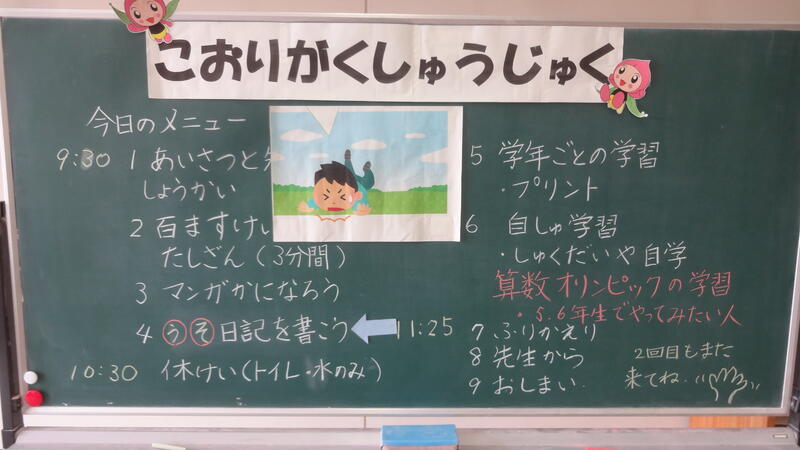 こおりがくしゅうじゅく
今日のメニュー
9:30 1 あいさつと
しょうかい
2 百ますけい
たしざん(3分間)
3 マンガかになろう
4 うそ日記を書こう
10:30 休けい(トイレ・水のみ)
5 学年ごとの学習
・プリント
6 自しゅ学習
・しゅくだいや自学
算数オリンピックの学習
・5.6年生でやってみたい人
11:25 7 ふりかえり
8 先生から
9 おしまい.
2回目もまた
来てね.